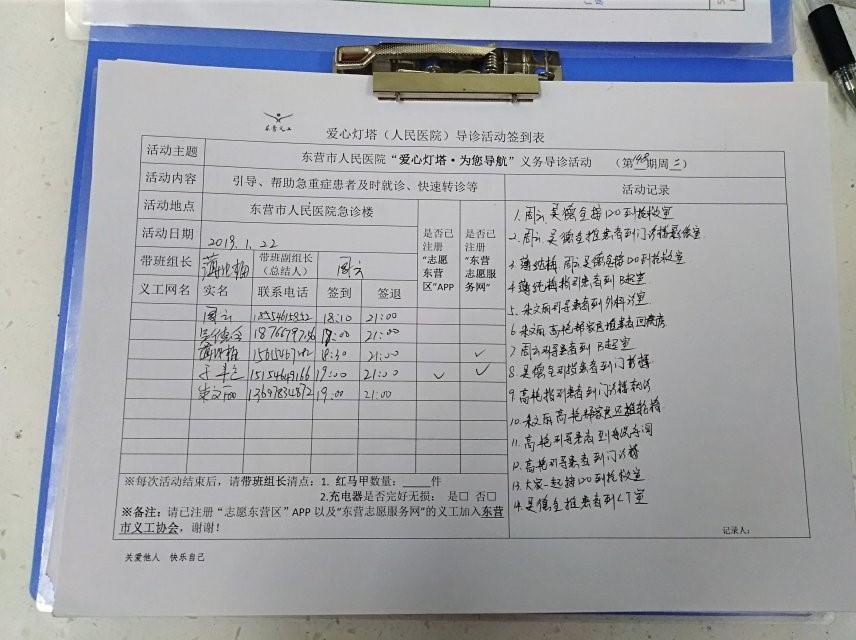 爱心灯塔（人民医院）导诊活动签到表
活动主题 东营市人民医院“爱心灯塔·为您导航”义务导诊活动 （第 期周二）
活动内容 引导、帮助急重症患者及时就诊、快速转诊等 活动记录
活动地点 东营市人民医院急诊楼 是否已注册“志愿东营区”APP 是否已注册“东营志愿服务网”
活动日期 2019.1.22
带班组长 带班副组长（总结人） 周云
义工网名 实名 联系电话 签到 签退
周云 18:10 21:00
吴德全 21:00
18:30 21:00 ✓
15154649166 19:00 21:00 ✓ ✓
朱文丽 13697834872 19:00 21:00
※每次活动结束后，请带班组长清点：1. 红马甲数量：_____件
2.充电器是否完好无损： 是□ 否□
※备注：请已注册“志愿东营区”APP 以及“东营志愿服务网”的义工加入东营
市义工协会，谢谢！
1. 周云 吴德全接120到抢救室
2. 周云 吴德全推患者到门诊楼
3. 周云吴德全接120到抢救室
4. 推患者到B超室
5. 朱文丽引导患者到外科诊室
6. 朱文丽 高艳帮家属推患者回病房
7 周云引导患者到B超室
8. 吴德全引患者到门诊楼
9. 高艳指引患者到门诊楼
10. 朱文丽 高艳帮家属还推轮椅
11. 高艳引导患者到洗手间
12. 高艳引导患者到门诊楼
13. 大家一起接120到抢救室
14. 吴德全推患者到CT室
记录人：
关爱他人 快乐自己